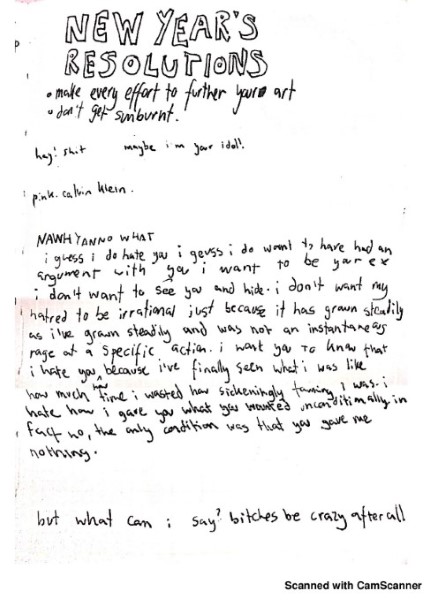 NEW YEAR'S
RESOLUTIONS
• make every effort to further your art
• don't get sunburnt.
hey! shit maybe i'm your idol!
pink. calvin klein.
NAWH YANNO WHAT
i guess i do hate you i geuss i do want to have had an
argument with you i want to be your ex
i don't want to see you and hide. i don't want my
hatred to be irrational just because it has grown steadily
as i've grown steadily and was not an instantaneous
rage at a specific action. i want you to know that
i hate you because i've finally seen what i was like
how much time i wasted how sickeningly fawning I was. i
hate how i gave you what you wanted unconditionally, in
fact no, the only condition was that you gave me
nothing.
but what can i say? bitches be crazy after all
Scanned with CamScanner